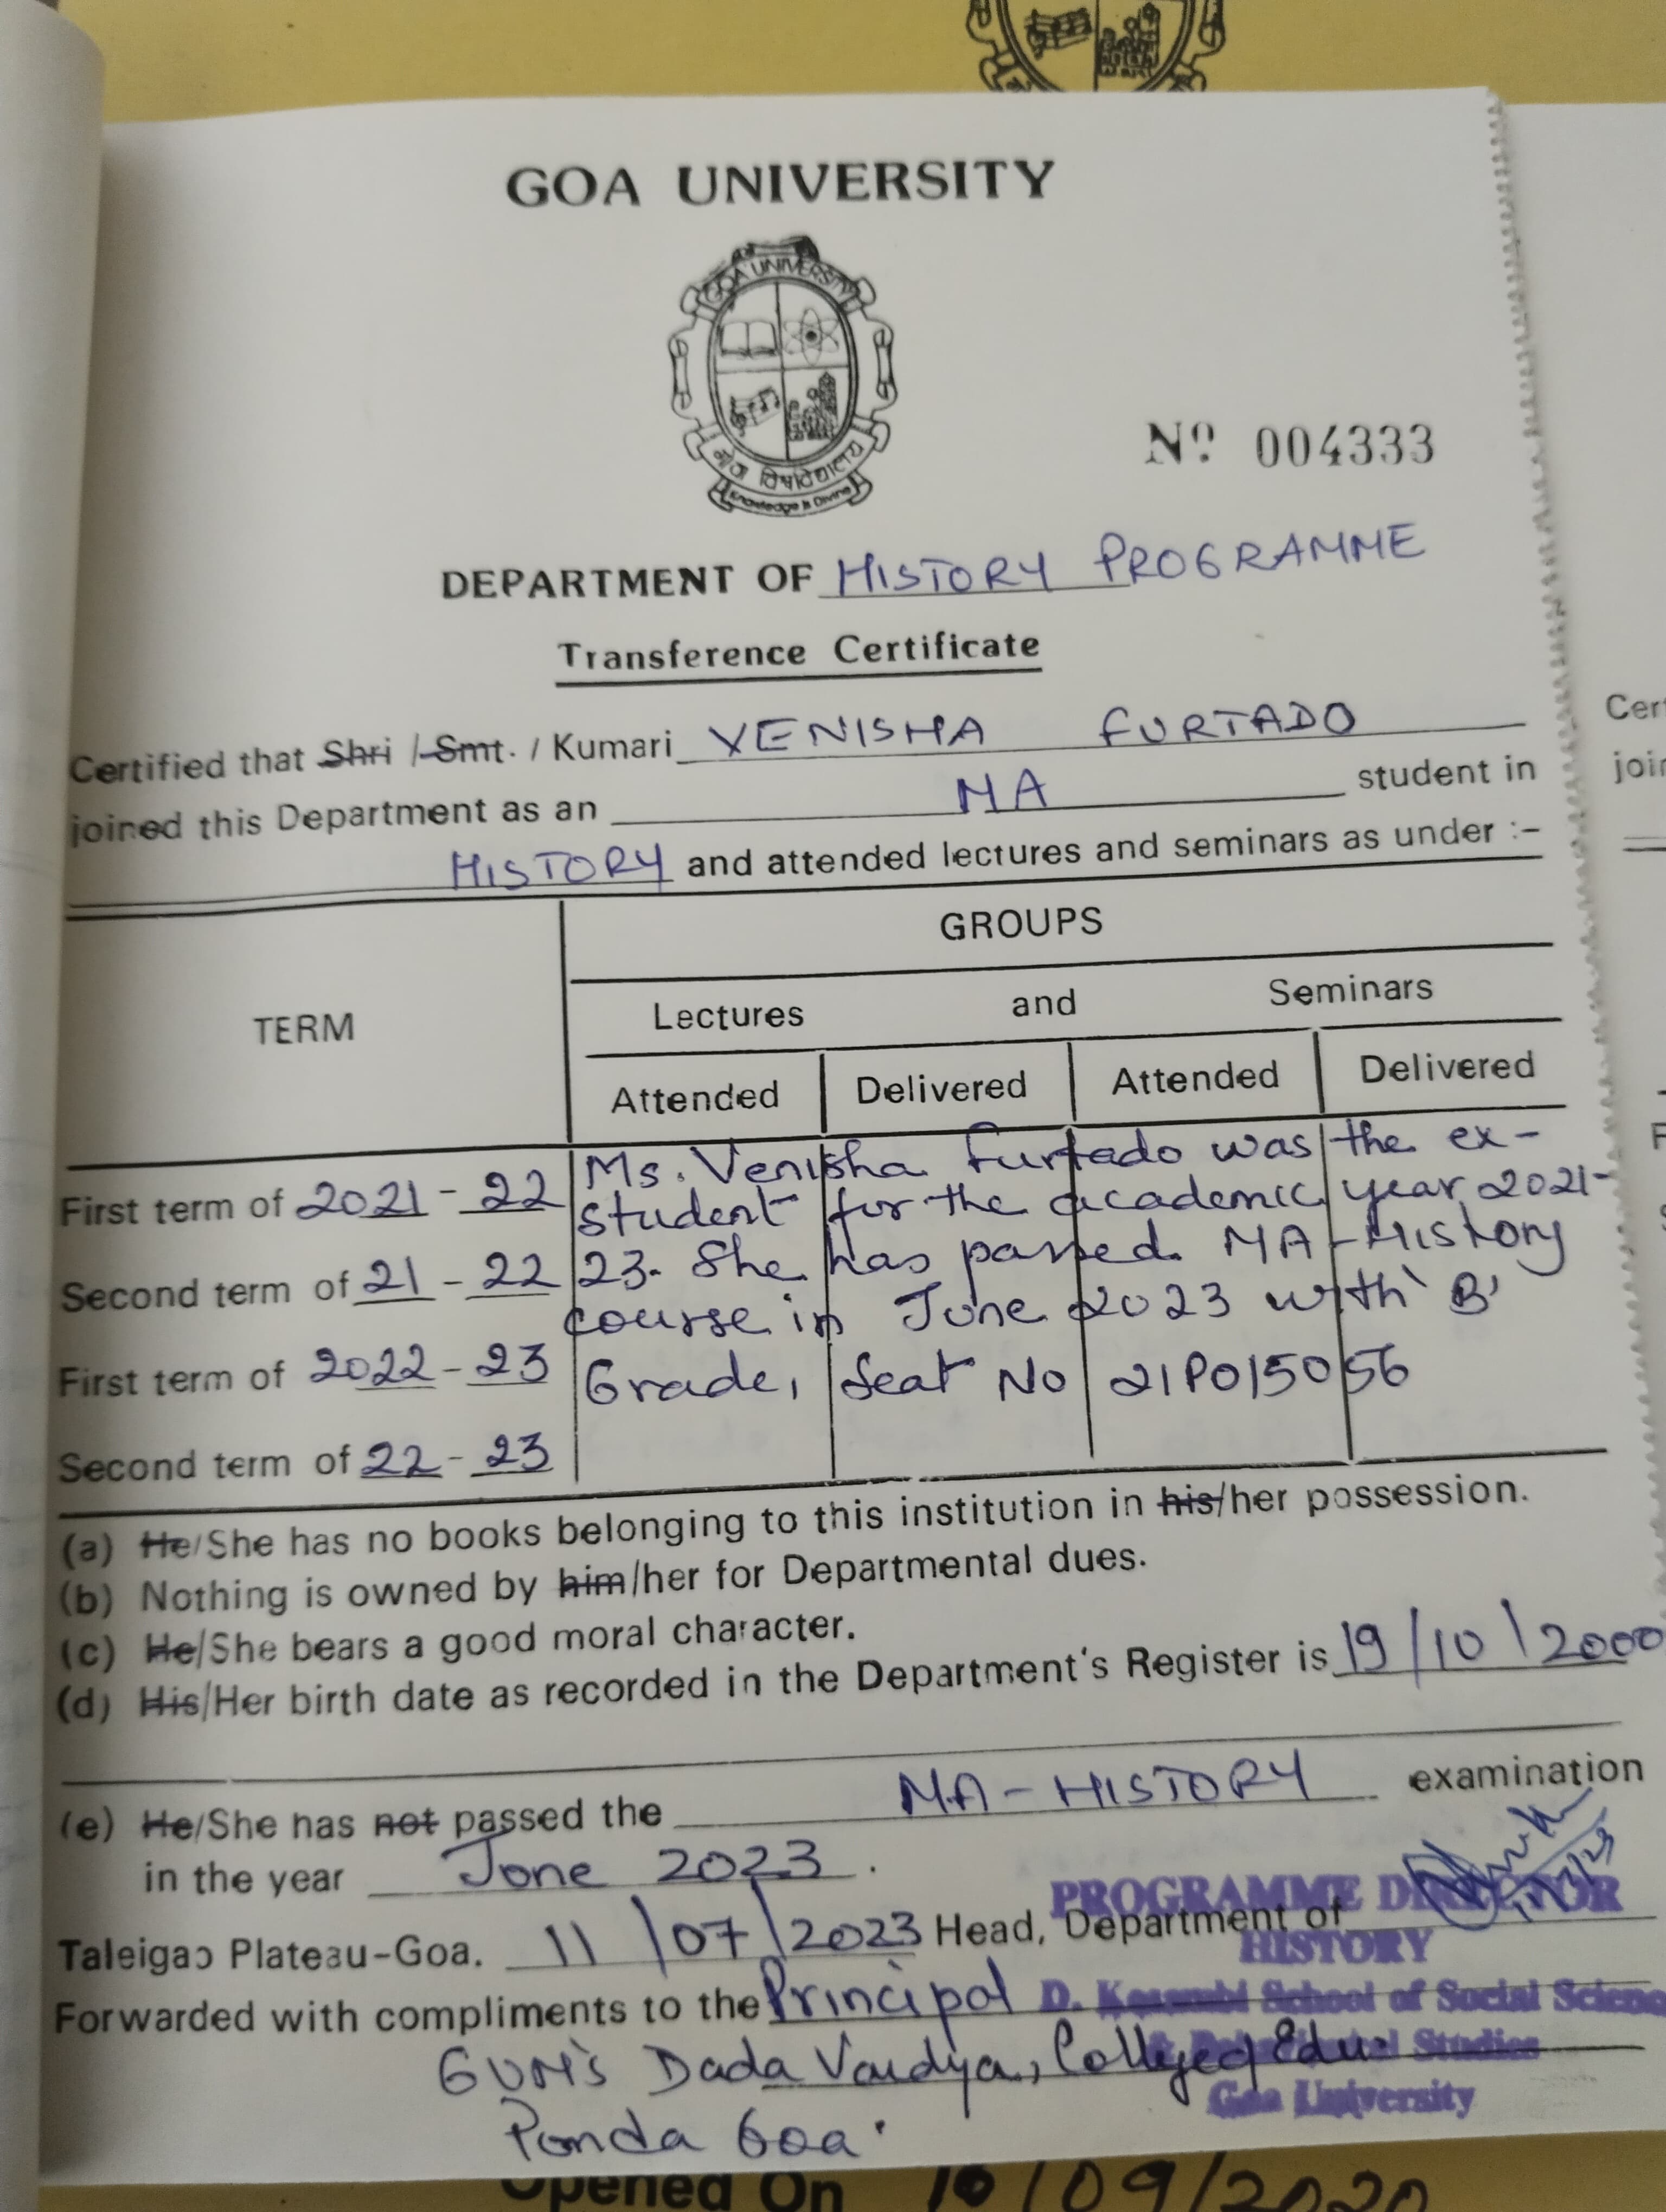 GOA UNIVERSITY
GOA UNIVERSITY
Knowledge is Divine
Nº 004333
DEPARTMENT OF HISTORY PROGRAMME
Transference Certificate
Certified that Shri / Smt. / Kumari VENISHA FURTADO
joined this Department as an MA student in
HISTORY and attended lectures and seminars as under :-
TERM
GROUPS
Lectures and Seminars
Attended Delivered Attended Delivered
First term of 2021-22
Second term of 21-22
First term of 2022-23
Second term of 22-23
Ms. Venisha Furtado was the ex-
student for the academic year 2021-
23. She has passed MA-History
course in June 2023 with 'B'
Grade, Seat No 21P015056
(a) He/She has no books belonging to this institution in his/her possession.
(b) Nothing is owned by him/her for Departmental dues.
(c) He/She bears a good moral character.
(d) His/Her birth date as recorded in the Department's Register is 19/10/2000
(e) He/She has not passed the MA-HISTORY examination
in the year June 2023.
Taleigao Plateau-Goa. 11/07/2023 Head, Department of
PROGRAMME DIRECTOR
HISTORY
D. Kosambi School of Social Scienc
& Behavioural Studies
Goa University
Forwarded with compliments to the Principal
GVM's Dada Vaidya, College of Edu.
Ponda Goa.
Opened On 10/09/2020
Cer
join